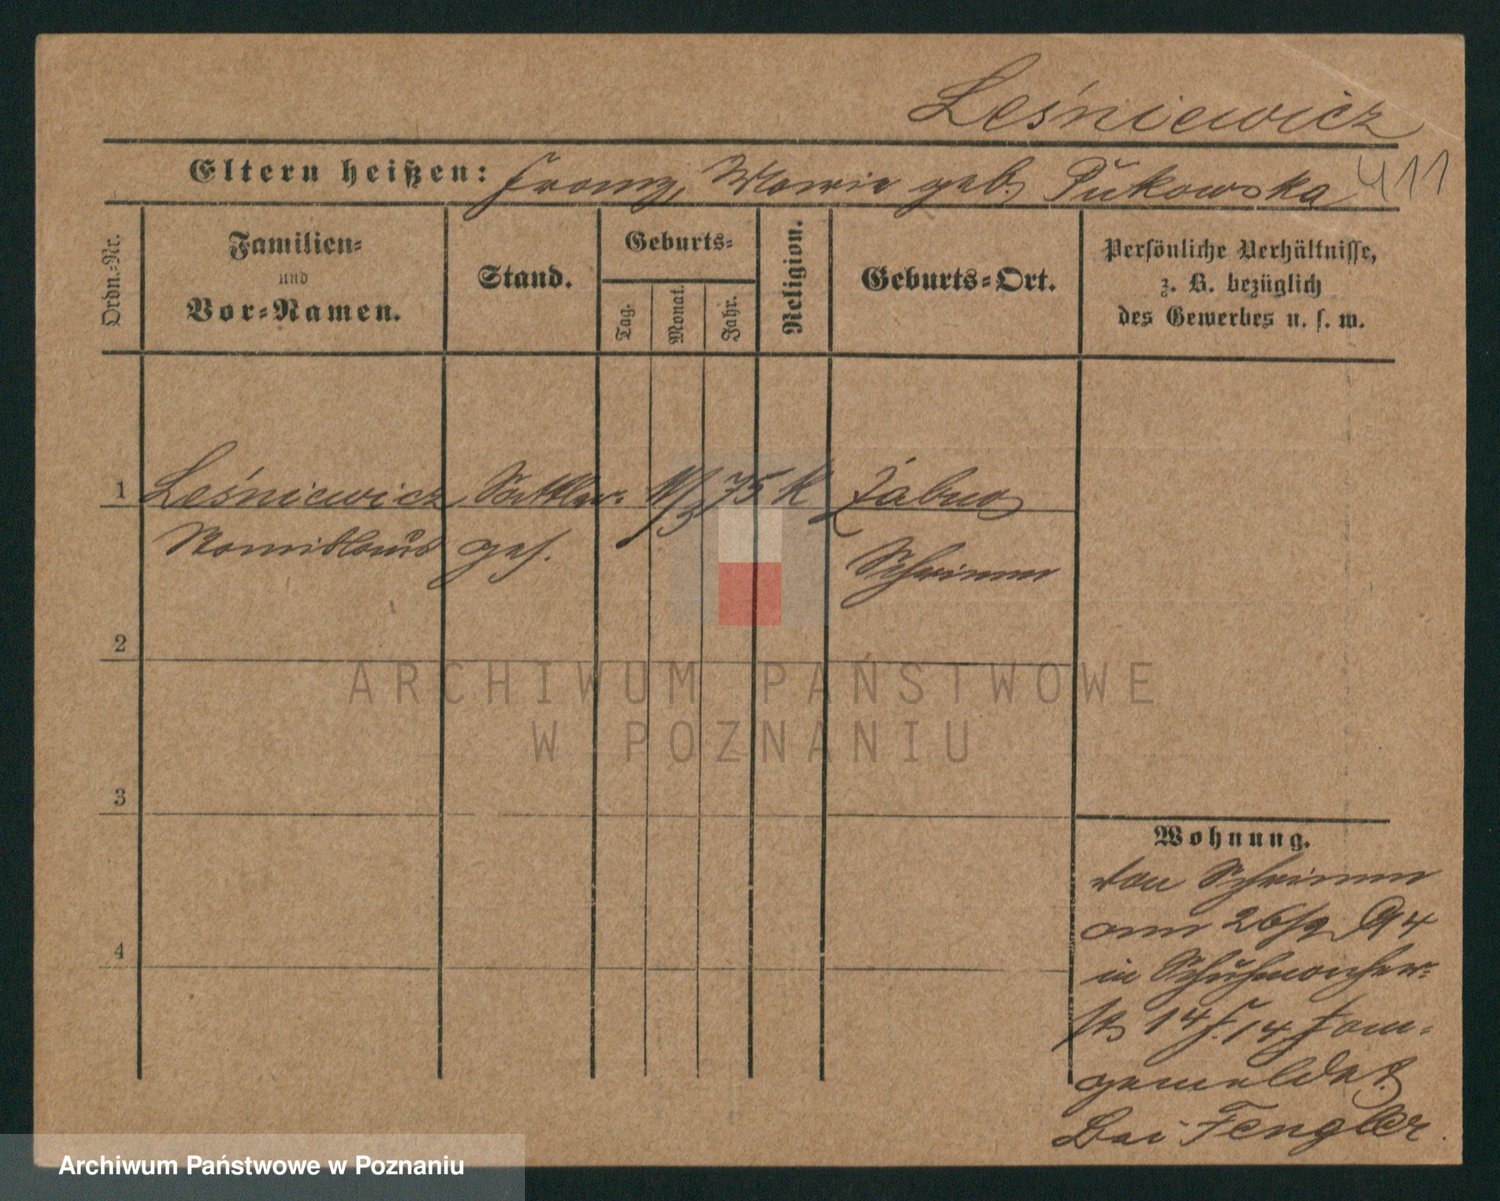 Leśniewicz
Eltern heißen: Franz, Marie geb. Pukowska 411
Ordn.-Nr.
Familien-
und
Vor-Namen.
Stand.
Geburts-
Tag.
Monat.
Jahr.
Religion.
Geburts-Ort.
Persönliche Verhältnisse,
z. B. bezüglich
des Gewerbes u. s. w.
1 Leśniewicz Sattler- 11/3 75 K Żabno
Stanislaus ges. Schrimm
2
3
4
Wohnung.
von Schrimm
am 26/9 94
in Schuhmacher-
str 14 J. 14 J an-
gemeldet.
Bei Fengler.
ARCHIWUM PAŃSTWOWE
W POZNANIU
Archiwum Państwowe w Poznaniu